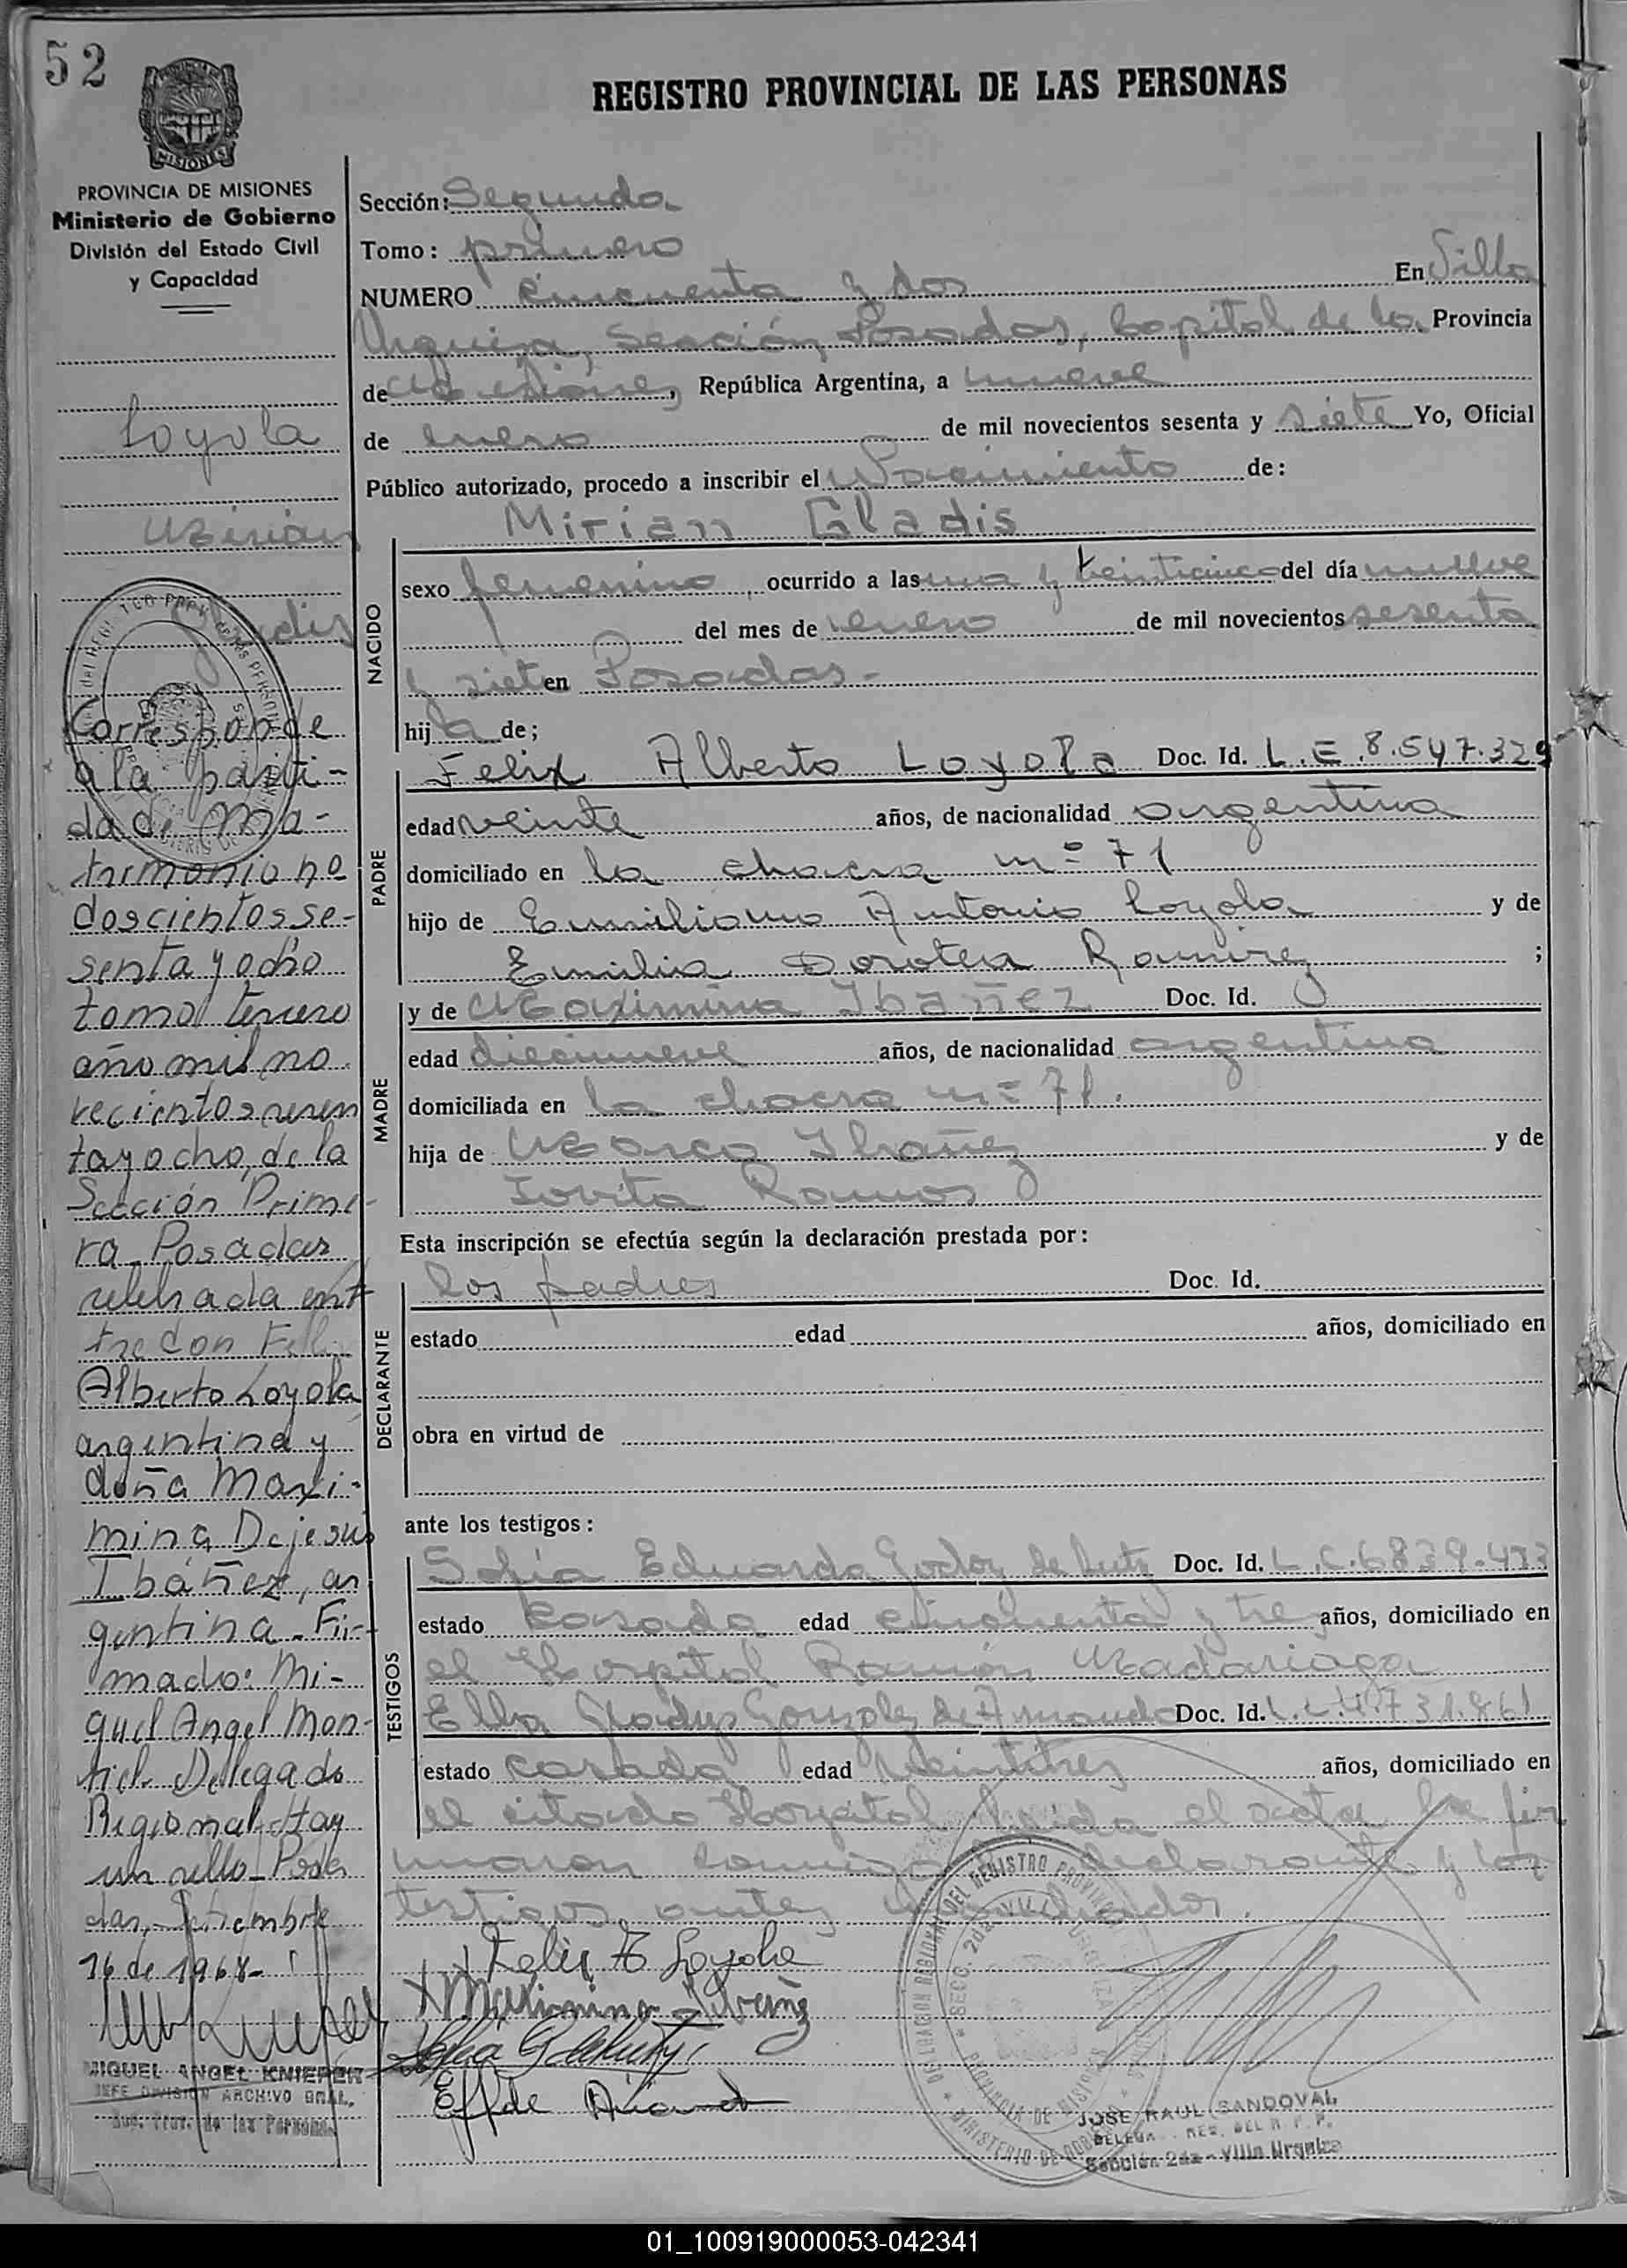 52
MISIONES
PROVINCIA DE MISIONES
Ministerio de Gobierno
División del Estado Civil
y Capacidad
Loyola
Mirian
Gladis
Corresponde
a la parti-
da de Ma-
trimonio no
doscientos se-
senta y ocho
tomo tercero
año mil no
vecientos sesen
ta y ocho, de la
Sección Prime-
ra Posadas
celebrada ent
tre don Feli
Alberto Loyola
argentina y
doña Maxi-
mina Dejesus
Ibáñez, ar
gentina. Fir-
mado: Mi-
guel Angel Mon-
tiel Delegado
Regional. Hay
un sello. Posa
das, Setiembre
16 de 1968.
MIGUEL ANGEL KNIEPER
JEFE DIVISION ARCHIVO GRAL.
REGISTRO PROVINCIAL DE LAS PERSONAS
Sección: Segunda
Tomo: primero
NUMERO Cincuenta y dos En Villa
Urquiza, Sección Posadas, Capital de la Provincia
de Misiones, República Argentina, a nueve
de enero de mil novecientos sesenta y siete Yo, Oficial
Público autorizado, procedo a inscribir el Nacimiento de:
NACIDO
Mirian Gladis
sexo femenino, ocurrido a las una y treinticinco del día nueve
del mes de enero de mil novecientos sesenta
y siete en Posadas.-
hija de;
PADRE
Felix Alberto Loyola Doc. Id. L.E. 8.547.329
edad veinte años, de nacionalidad argentina
domiciliado en la chacra nº 71
hijo de Emiliano Antonio Loyola y de
Emilia Dorotea Ramirez ;
MADRE
y de Maximina Ibañez Doc. Id.
edad diecinueve años, de nacionalidad argentina
domiciliada en la chacra nº 71.
hija de Marco Ibañez y de
Jovita Ramos
Esta inscripción se efectúa según la declaración prestada por:
DECLARANTE
los padres Doc. Id.
estado edad años, domiciliado en
obra en virtud de
ante los testigos:
TESTIGOS
Sofia Eduarda Godoy de Lutz Doc. Id. L.C. 6839.433
estado casada edad cincuenta y tres años, domiciliado en
el Hospital Ramón Madariaga
Elba Gladys Gonzalez de Doc. Id. L.C. 4.731.861
estado casada edad veintitres años, domiciliado en
el citado Hospital leida el acta la fir
maron conmigo declarante y los
testigos antes mencionados.
Felix A Loyola
Maximina Ibañez
JOSE RAUL SANDOVAL
DELEGA. REG. DEL R. P. P.
Sección 2da - Villa Urquiza
01_100919000053-042341